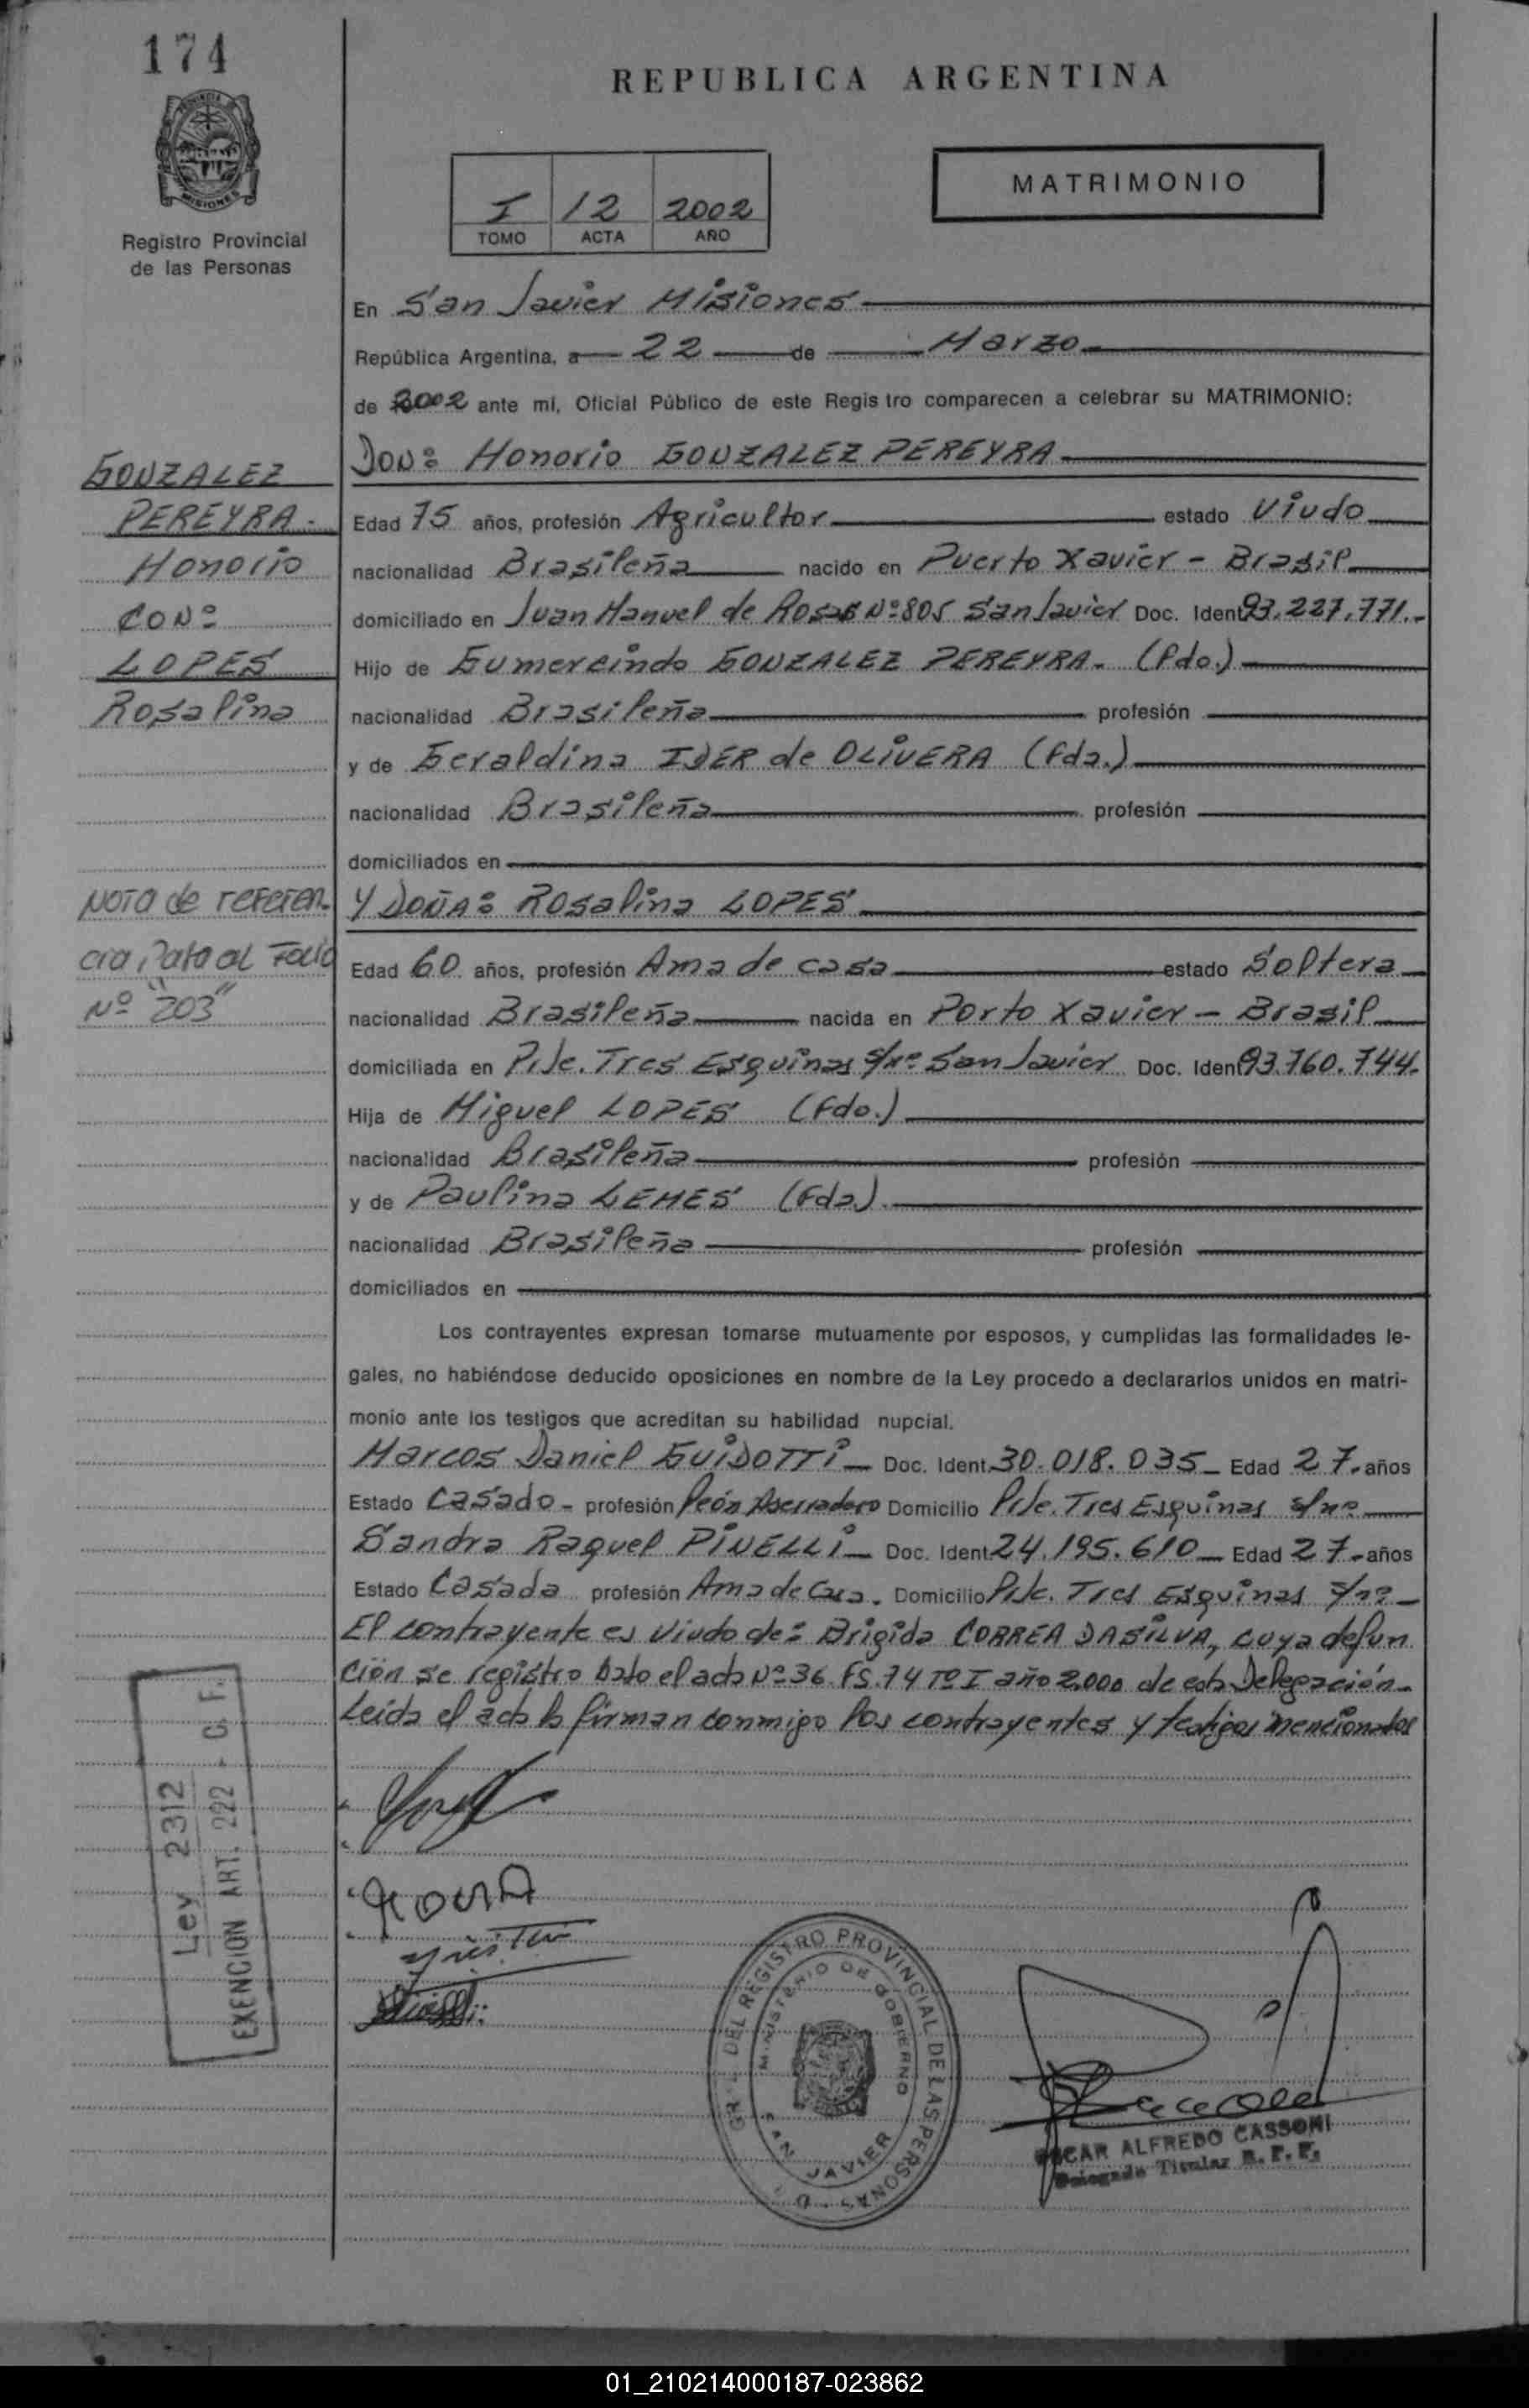 174
REPUBLICA ARGENTINA
MISIONES
Registro Provincial
de las Personas
I 12 2002
TOMO ACTA AÑO
MATRIMONIO
En San Javier Misiones
República Argentina, a 22 de Marzo
de 2002 ante mi, Oficial Público de este Regis tro comparecen a celebrar su MATRIMONIO:
GONZALEZ
PEREYRA.
Honorio
CON:
LOPES
Rosalina
DON: Honorio GONZALEZ PEREYRA
Edad 75 años, profesión Agricultor estado Viudo
nacionalidad Brasileña nacido en Puerto Xavier - Brasil
domiciliado en Juan Manuel de Rosas Nº 805 San Javier Doc. Ident 93.227.771.-
Hijo de Gumercindo GONZALEZ PEREYRA. (fdo.)
nacionalidad Brasileña profesión
y de Geraldina IDER de OLIVERA (fda.)
nacionalidad Brasileña profesión
domiciliados en
Nota de referen-
cia, Pata al Folio
Nº "203"
Y DOÑA: Rosalina LOPES
Edad 60 años, profesión Ama de casa estado Soltera
nacionalidad Brasileña nacida en Porto Xavier - Brasil
domiciliada en Pje. Tres Esquinas s/nº San Javier Doc. Ident 93.760.744.
Hija de Miguel LOPES (fdo.)
nacionalidad Brasileña profesión
y de Paulina LEMES (fda.)
nacionalidad Brasileña profesión
domiciliados en
Los contrayentes expresan tomarse mutuamente por esposos, y cumplidas las formalidades le-
gales, no habiéndose deducido oposiciones en nombre de la Ley procedo a declararlos unidos en matri-
monio ante los testigos que acreditan su habilidad nupcial.
Marcos Daniel GUIDOTTI Doc. Ident. 30.018.035 Edad 27 años
Estado Casado - profesión Peón Aserradero Domicilio Pje. Tres Esquinas s/nº
Sandra Raquel PINELLI Doc. Ident 24.195.610 Edad 27 años
Estado Casada profesión Ama de Casa. Domicilio Pje. Tres Esquinas s/nº
El contrayente es viudo de: Brigida CORREA DASILVA, cuya defun
ción se registro bajo el acta Nº 36 FS. 74 Tº I año 2.000 de esta Delegación.
Leída el acta la firman conmigo los contrayentes y testigos mencionados
Ley 2312
EXENCION ART. 222 - C. F.
DEL REGISTRO PROVINCIAL DE LAS PERSONAS
MINISTERIO DE GOBIERNO
SAN JAVIER
OSCAR ALFREDO CASSONI
Delegado Titular R. P. P.
01_210214000187-023862